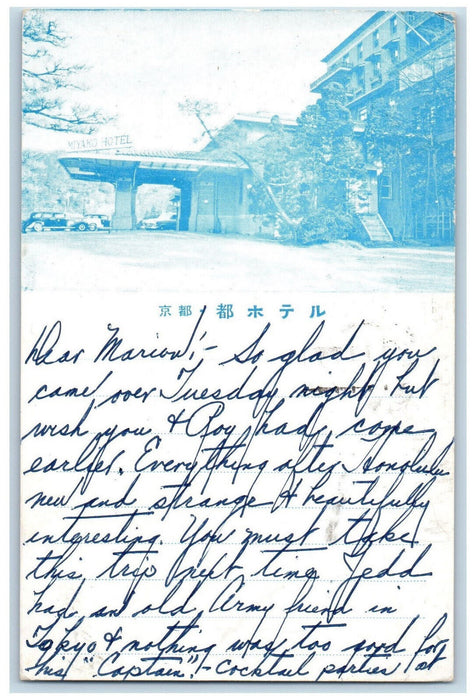 MIYAKO HOTEL
京都 都ホテル
Dear Marion!- So glad you
came over Tuesday night but
wish you & Roy had come
earlier. Everything after Honolulu
new and strange & beautifully
interesting. You must take
this trip next time. Tedd
had an old Army friend in
Tokyo & nothing was too good for
his "Captain"! - cocktail parties at